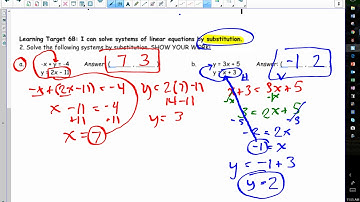 Learning Target 6B: I can solve systems of linear equations by substitution.
2. Solve the following systems by substitution. SHOW YOUR WORK!
a. -x + y = -4 Answer: ( 7 , 3 )
y = 2x - 11
b. y = 3x + 5 Answer: ( -1 , 2 )
y = x + 3
-x + (2x - 11) = -4
x - 11 = -4
+11 +11
x = 7
y = 2(7) - 11
14 - 11
y = 3
x + 3 = 3x + 5
-x -x
3 = 2x + 5
-5 -5
-2 = 2x
-1 = x
y = -1 + 3
y = 2